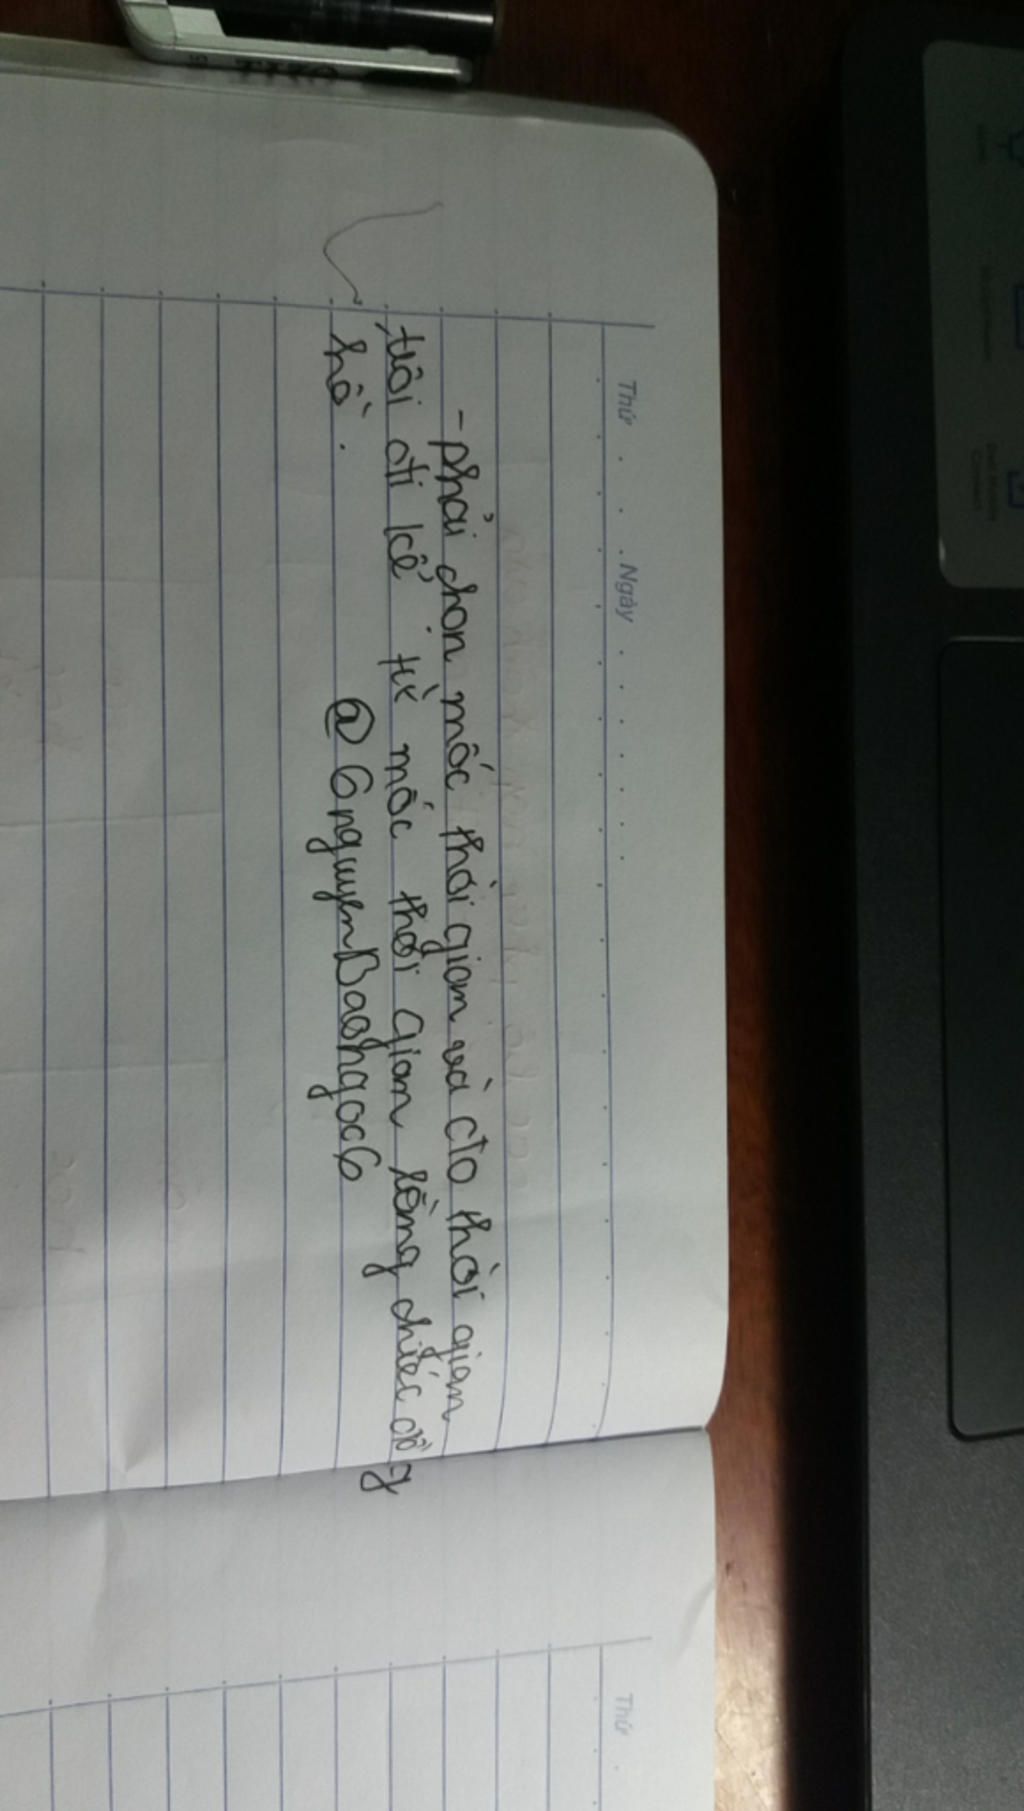 Thứ . . . Ngày . . . . . .
- phải chọn mốc thời gian và đo thời gian
trôi đi kể từ mốc thời gian bằng chiếc đồng
hồ.
@ GnguyenBaongoc6
Thứ .